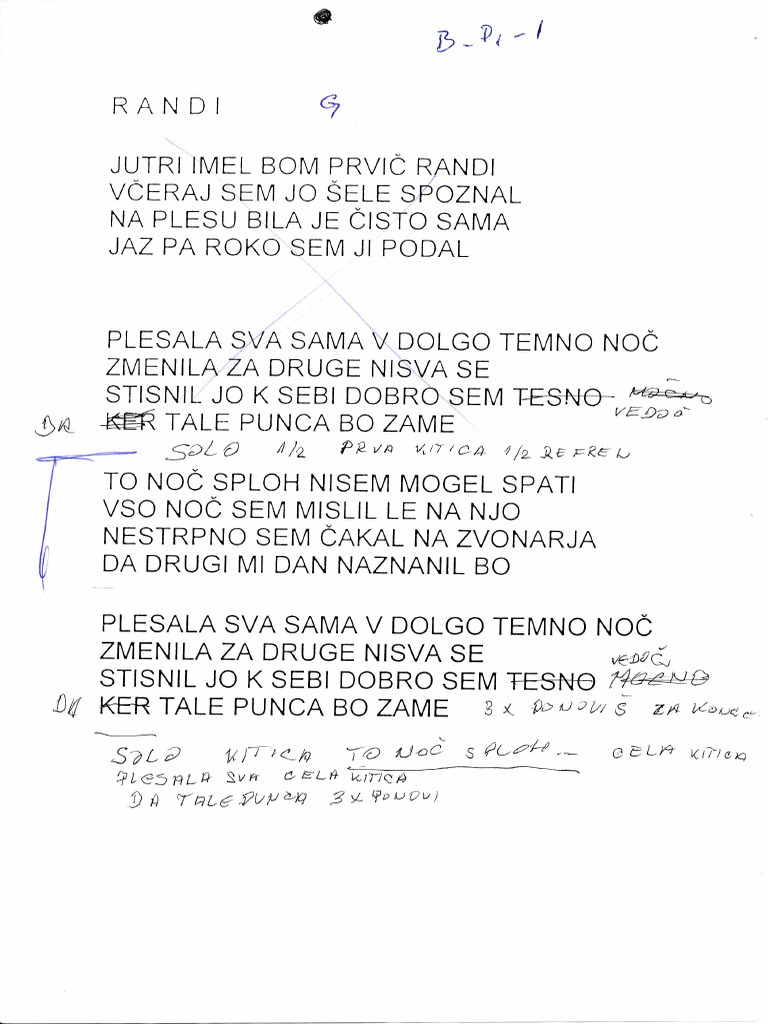 B-D,-1
RANDI G
JUTRI IMEL BOM PRVIČ RANDI
VČERAJ SEM JO ŠELE SPOZNAL
NA PLESU BILA JE ČISTO SAMA
JAZ PA ROKO SEM JI PODAL
PLESALA SVA SAMA V DOLGO TEMNO NOČ
ZMENILA ZA DRUGE NISVA SE
STISNIL JO K SEBI DOBRO SEM TESNO MOČNO
VEDOČ
DA KER TALE PUNCA BO ZAME
SOLO 1/2 PRVA KITICA 1/2 REFREN
TO NOČ SPLOH NISEM MOGEL SPATI
VSO NOČ SEM MISLIL LE NA NJO
NESTRPNO SEM ČAKAL NA ZVONARJA
DA DRUGI MI DAN NAZNANIL BO
PLESALA SVA SAMA V DOLGO TEMNO NOČ
ZMENILA ZA DRUGE NISVA SE
VEDOČ
STISNIL JO K SEBI DOBRO SEM TESNO MOČNO
DA KER TALE PUNCA BO ZAME 3X PONOVIŠ ZA KONEC
SOLO KITICA TO NOČ SPLOH... CELA KITICA
PLESALA SVA CELA KITICA
DA TALE PUNCA 3X PONOVI